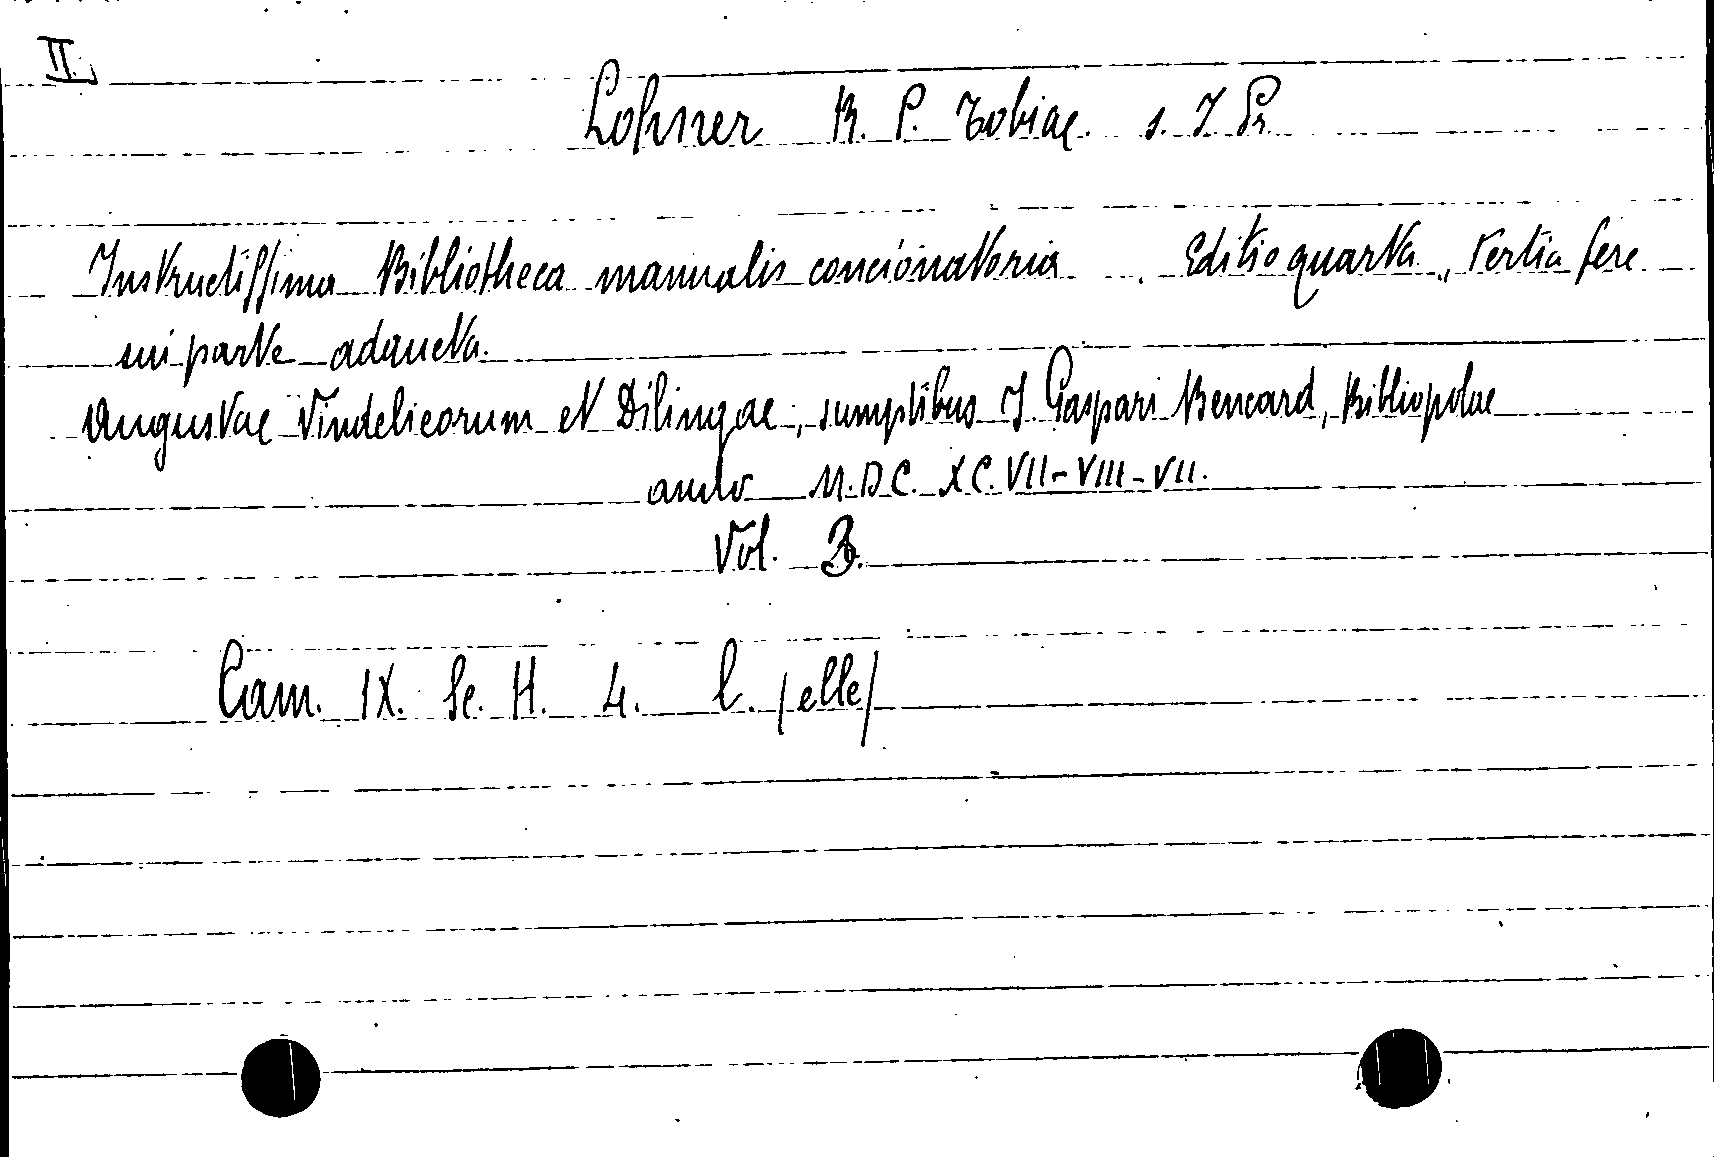 II.
Lohner R. P. Tobiae. s. J Pr
Instructissima Bibliotheca manualis concionatoria. Editio quarta, tertia fere
sui parte adaucta.
Augustae Vindelicorum et Dilingae, sumptibus J. Gaspari Bencard, Bibliopolae
anno M.DC.XC.VII-VIII-VII.
Vol. 3.
Cam. IX. Sc. H. 4. l. /elle/